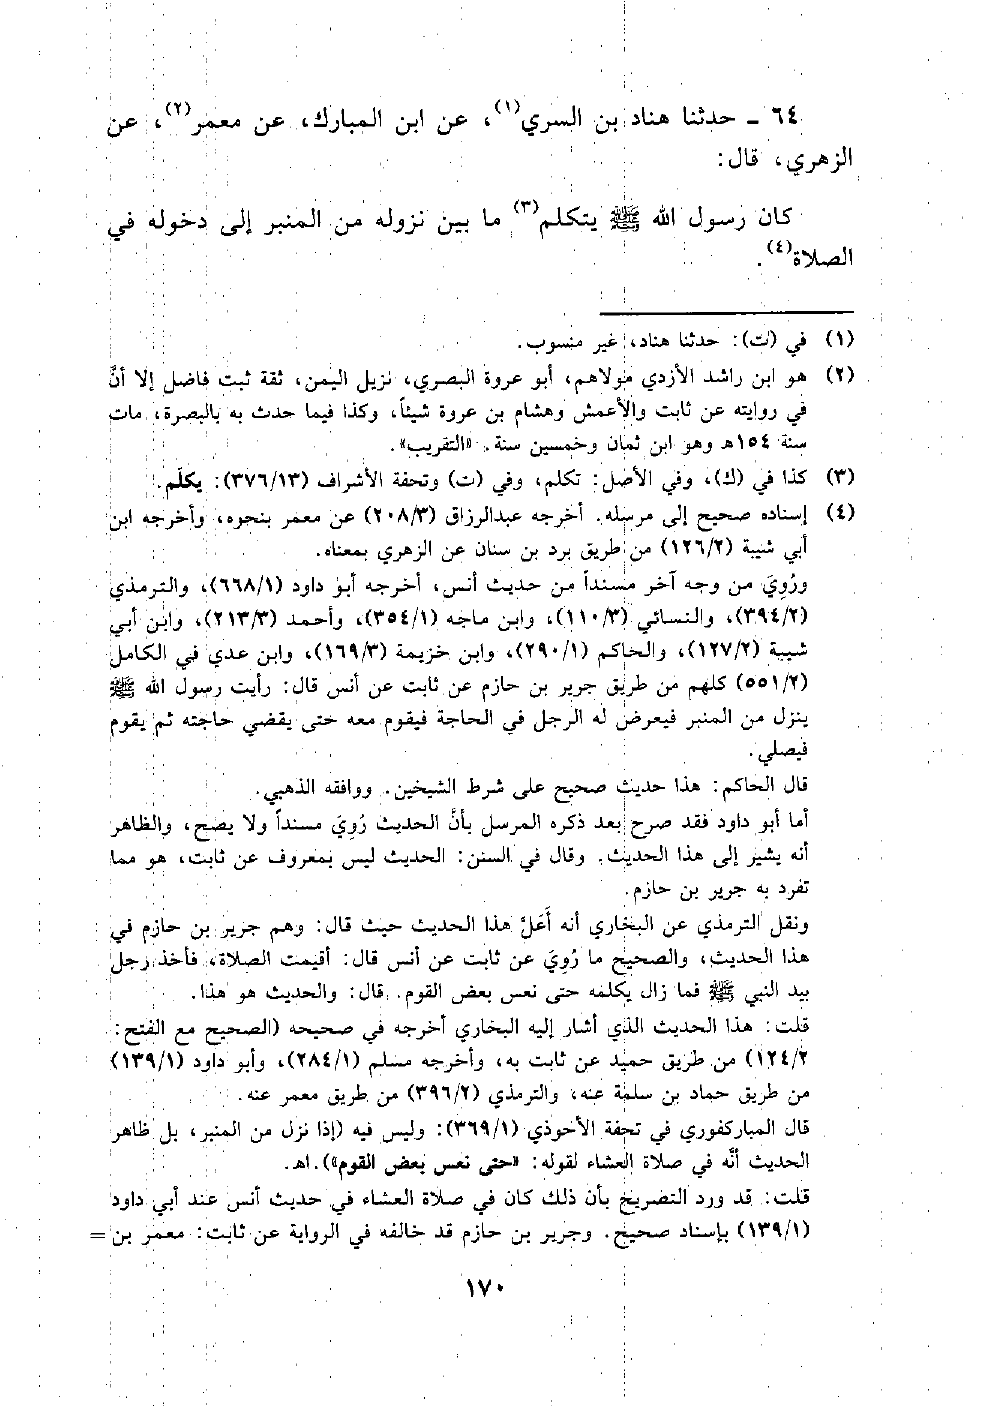 ٦٤ ـ حدثنا هناد بن السري(١)، عن ابن المبارك، عن معمر(٢)، عن
الزهري، قال:
كان رسول الله ﷺ يتكلم(٣) ما بين نزوله من المنبر إلى دخوله في
الصلاة(٤).
(١) في (ت): حدثنا هناد، غير منسوب.
(٢) هو ابن راشد الأزدي مولاهم، أبو عروة البصري، نزيل اليمن، ثقة ثبت فاضل إلا أنَّ
في روايته عن ثابت والأعمش وهشام بن عروة شيئاً، وكذا فيما حدث به بالبصرة، مات
سنة ١٥٤هـ وهو ابن ثمان وخمسين سنة. «التقريب».
(٣) كذا في (ك)، وفي الأصل: تكلم، وفي (ت) وتحفة الأشراف (٣٧٦/١٣): يكلّم.
(٤) إسناده صحيح إلى مرسله. أخرجه عبدالرزاق (٢٠٨/٣) عن معمر بنحوه، وأخرجه ابن
أبي شيبة (١٢٦/٢) من طريق برد بن سنان عن الزهري بمعناه.
ورُوِيَ من وجه آخر مسنداً من حديث أنس، أخرجه أبو داود (٦٦٨/١)، والترمذي
(٣٩٤/٢)، والنسائي (١١٠/٣)، وابن ماجه (٣٥٤/١)، وأحمد (٢١٣/٣)، وابن أبي
شيبة (١٢٧/٢)، والحاكم (٢٩٠/١)، وابن خزيمة (١٦٩/٣)، وابن عدي في الكامل
(٥٥١/٢) كلهم من طريق جرير بن حازم عن ثابت عن أنس قال: رأيت رسول الله ﷺ
ينزل من المنبر فيعرض له الرجل في الحاجة فيقوم معه حتى يقضي حاجته ثم يقوم
فيصلي.
قال الحاكم: هذا حديث صحيح على شرط الشيخين. ووافقه الذهبي.
أما أبو داود فقد صرح بعد ذكره المرسل بأنَّ الحديث رُوِيَ مسنداً ولا يصح، والظاهر
أنه يشير إلى هذا الحديث. وقال في السنن: الحديث ليس بمعروف عن ثابت، هو مما
تفرد به جرير بن حازم.
ونقل الترمذي عن البخاري أنه أَعَلَّ هذا الحديث حيث قال: وهم جرير بن حازم في
هذا الحديث، والصحيح ما رُوِيَ عن ثابت عن أنس قال: أقيمت الصلاة، فأخذ رجل
بيد النبي ﷺ فما زال يكلمه حتى نعس بعض القوم. قال: والحديث هو هذا.
قلت: هذا الحديث الذي أشار إليه البخاري أخرجه في صحيحه (الصحيح مع الفتح:
١٢٤/٢) من طريق حميد عن ثابت به، وأخرجه مسلم (٢٨٤/١)، وأبو داود (١٣٩/١)
من طريق حماد بن سلمة عنه، والترمذي (٣٩٦/٢) من طريق معمر عنه.
قال المباركفوري في تحفة الأحوذي (٣٦٩/١): وليس فيه (إذا نزل من المنبر، بل ظاهر
الحديث أنَّه في صلاة العشاء لقوله: «حتى نعس بعض القوم»). اهـ.
قلت: قد ورد التصريح بأن ذلك كان في صلاة العشاء في حديث أنس عند أبي داود
(١٣٩/١) بإسناد صحيح. وجرير بن حازم قد خالفه في الرواية عن ثابت: معمر بن =
١٧٠